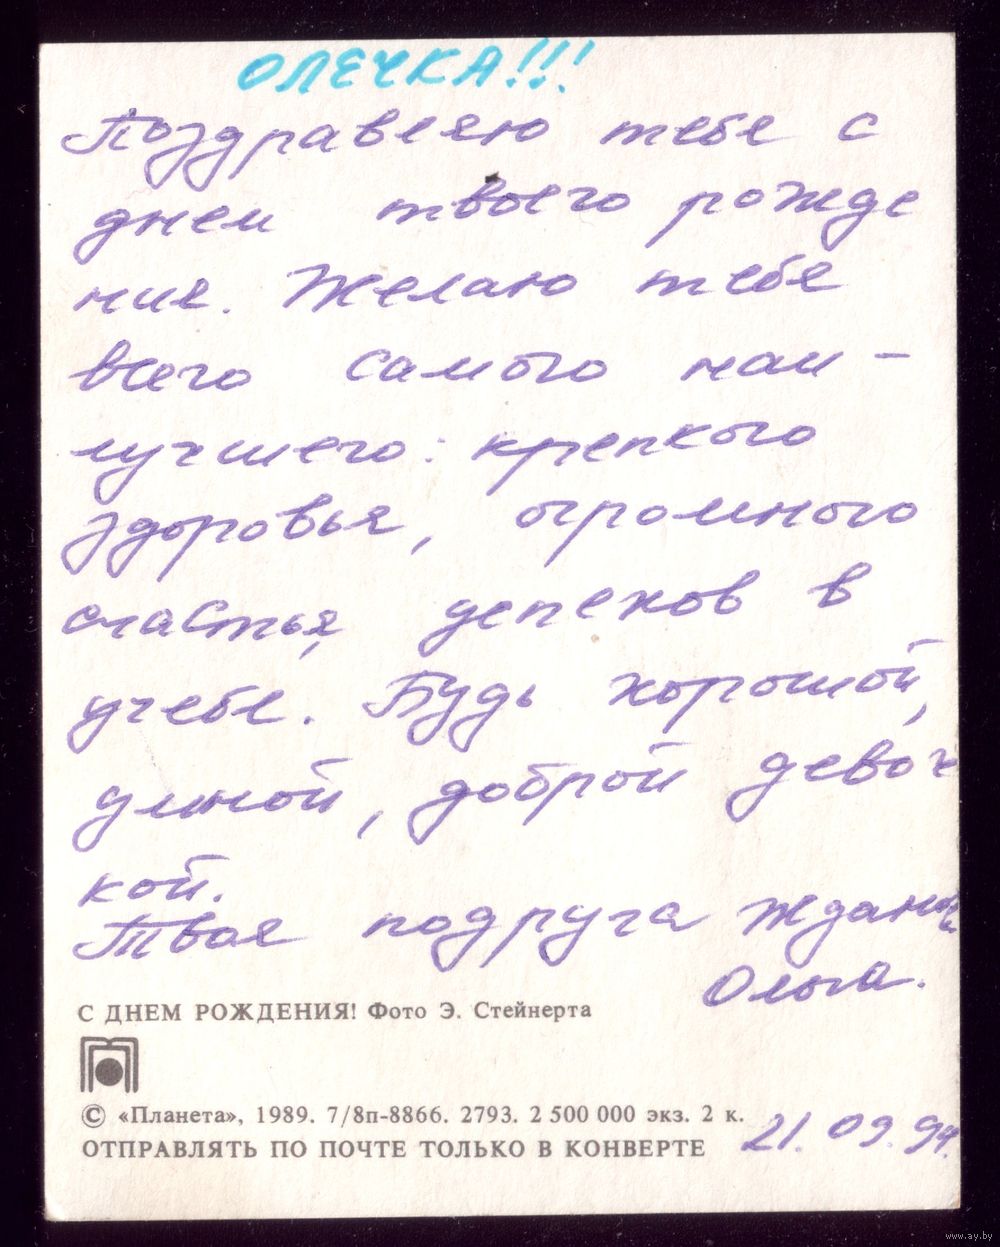 ОЛЕЧКА!!!
Поздравляю тебя с
днем твоего рожде
ния. Желаю тебя
всего самого наи-
лучшего: крепкого
здоровья, огромного
счастья, успехов в
учебе. Будь хорошой,
умной, доброй девоч
кой.
Твоя подруга
Ольга.
С ДНЕМ РОЖДЕНИЯ! Фото Э. Стейнерта
© «Планета», 1989. 7/8п-8866. 2793. 2 500 000 экз. 2 к.
ОТПРАВЛЯТЬ ПО ПОЧТЕ ТОЛЬКО В КОНВЕРТЕ
21.09.94.
www.ay.by